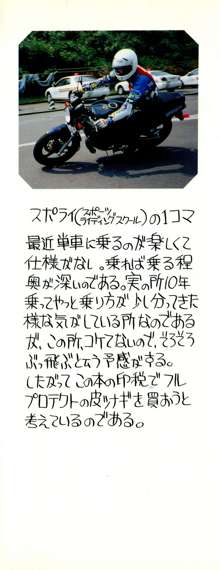 スポライ(スポーツライディングスクール)の1コマ
最近単車に乗るのが楽しくて
仕様がなし。乗れば乗る程
奥が深いのである。実の所10年
乗ってやっと乗り方が少し分ってきた
様な気がしている所なのである
が、この所、コケてないので、そろそろ
ぶっ飛ぶと云う予感がする。
したがってこの本の印税でフル
プロテクトの皮ツナギを買おうと
考えているのである。